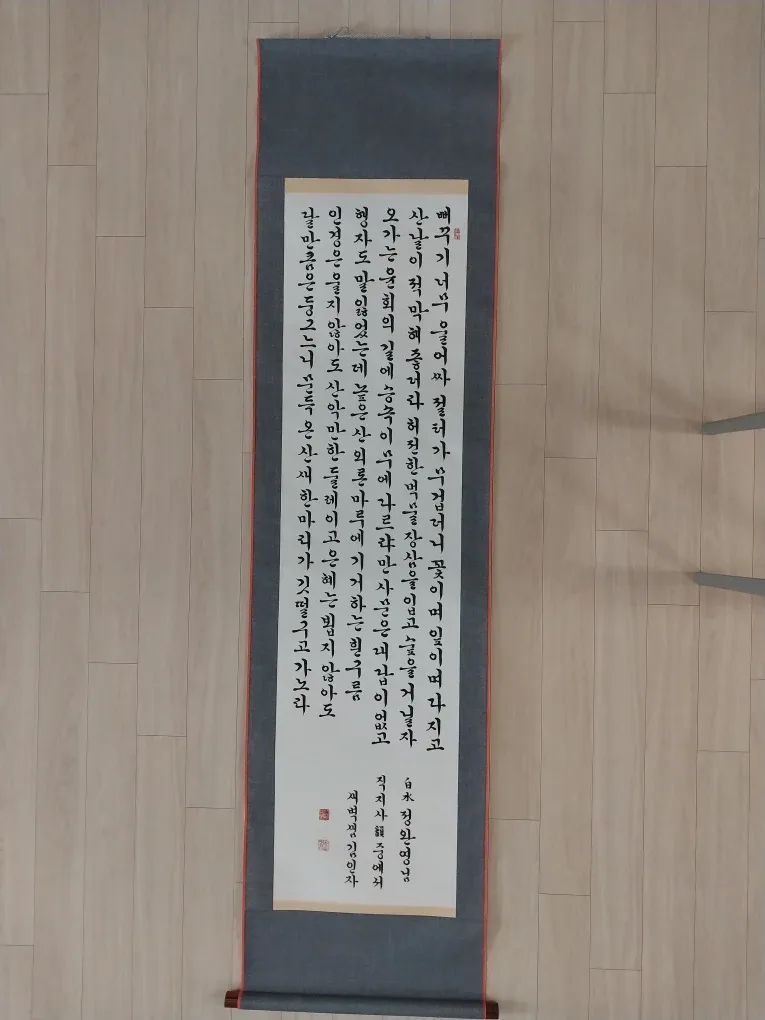 뻐꾸기 너무 울어싸 절터가 무겁더니 꽃이며 잎이며 다 지고
산날이 적막해 좋더라 허전한 먹물 장삼을 입고 숲을 거닐자
오가는 윤회의 길에 승속이 무에 다르랴만 사문은 대답이 없고
행자도 말 잃었는데 높은 산 외론 마루에 기거하는 흰구름
인경은 울지 않아도 산악만한 둘레이고 은혜는 뵙지 않아도
달만큼은 둥그느니 문득 온 산새 한마리가 깃떨구고 가노라
白水 정완영님
직지사 韻 중에서
새벽샘 김인자